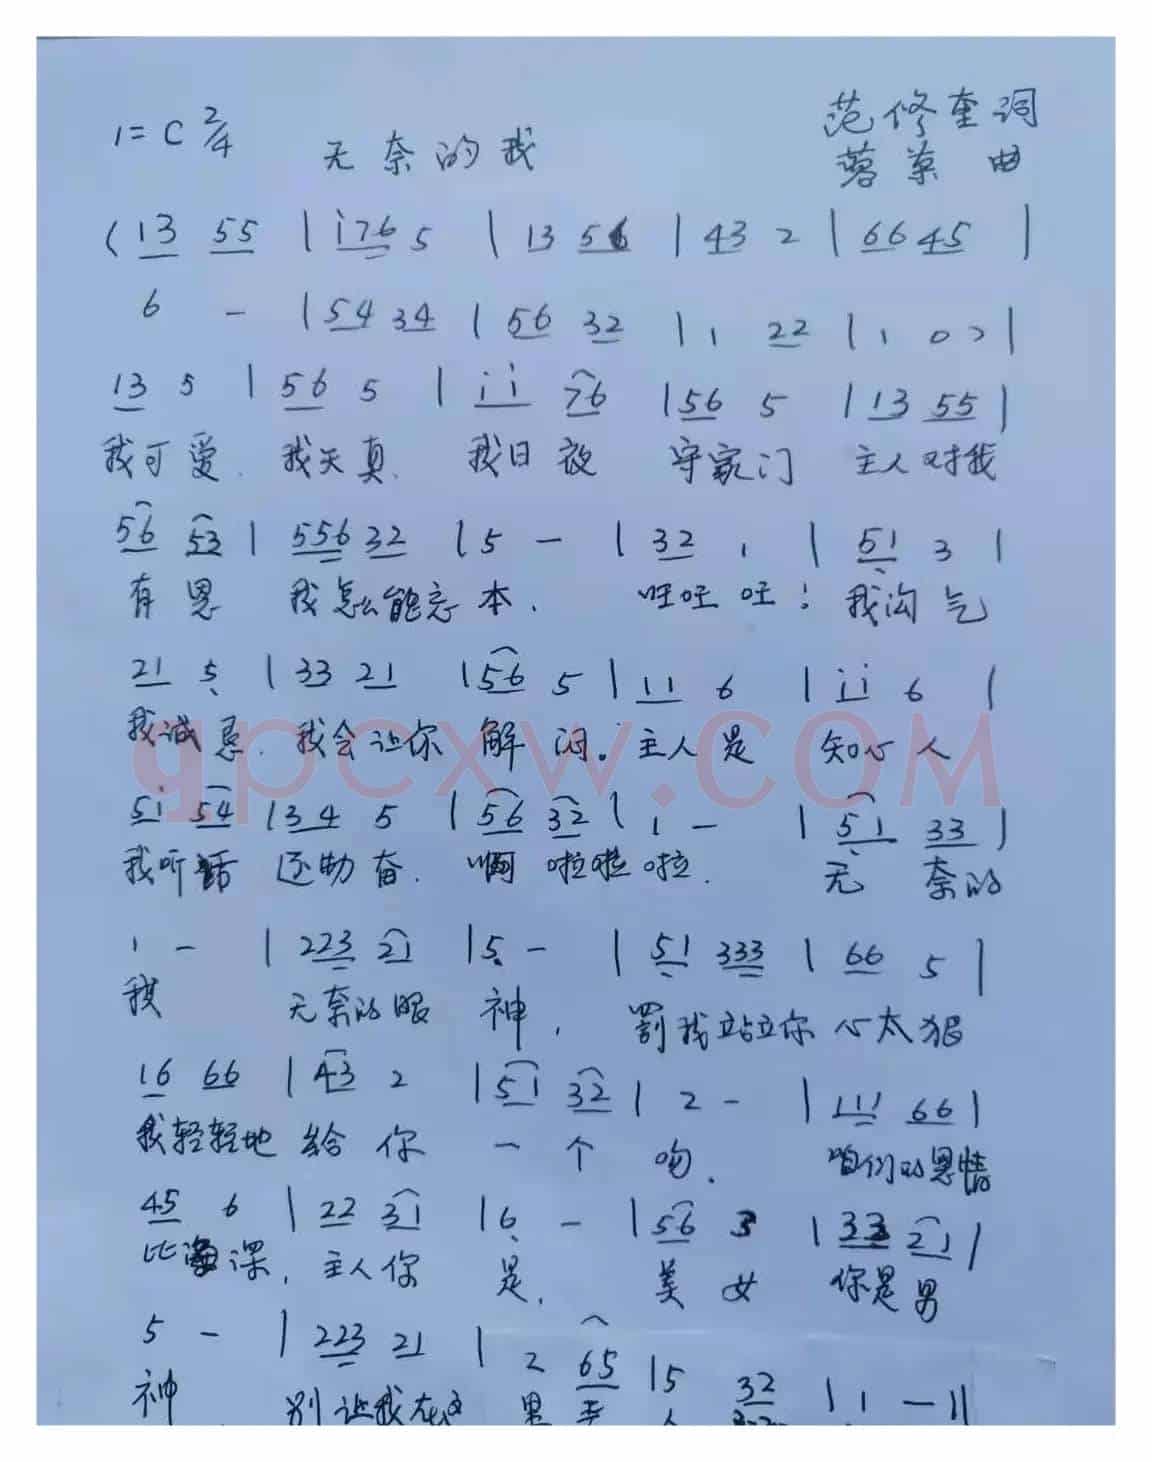 1=C 2/4 无奈的我 范修奎词
蓉菜 曲
( 13 55 | i76 5 | 13 56 | 43 2 | 66 45 |
6 - | 54 34 | 56 32 | 1 22 | 1 0 ) |
13 5 | 56 5 | ii 76 | 56 5 | 13 55 |
我可爱. 我天真. 我日夜 守家门 主人对我
56 53 | 556 32 | 5 - | 32 1 | 51 3 |
有恩 我怎么能忘本. 旺旺旺! 我淘气
21 5 | 33 21 | 56 5 | 11 6 | ii 6 |
我诚恳. 我会让你解闷。主人是 知心人
5i 54 | 34 5 | 56 32 | 1 - | 51 33 |
我听话 还勤奋. 啊啦啦啦. 无奈的
1 - | 223 21 | 5 - | 51 333 | 66 5 |
我 无奈的眼神, 罚我站立你心太狠
16 66 | 43 2 | 51 32 | 2 - | 111 66 |
我轻轻地给你一个吻. 咱们的恩情
45 6 | 22 31 | 6 - | 56 3 | 33 21 |
比海深, 主人你是, 美女 你是男
5 - | 223 21 | 2 65 | 5 32 | 1 - ||
神 别让我在这
gpcxw.COM